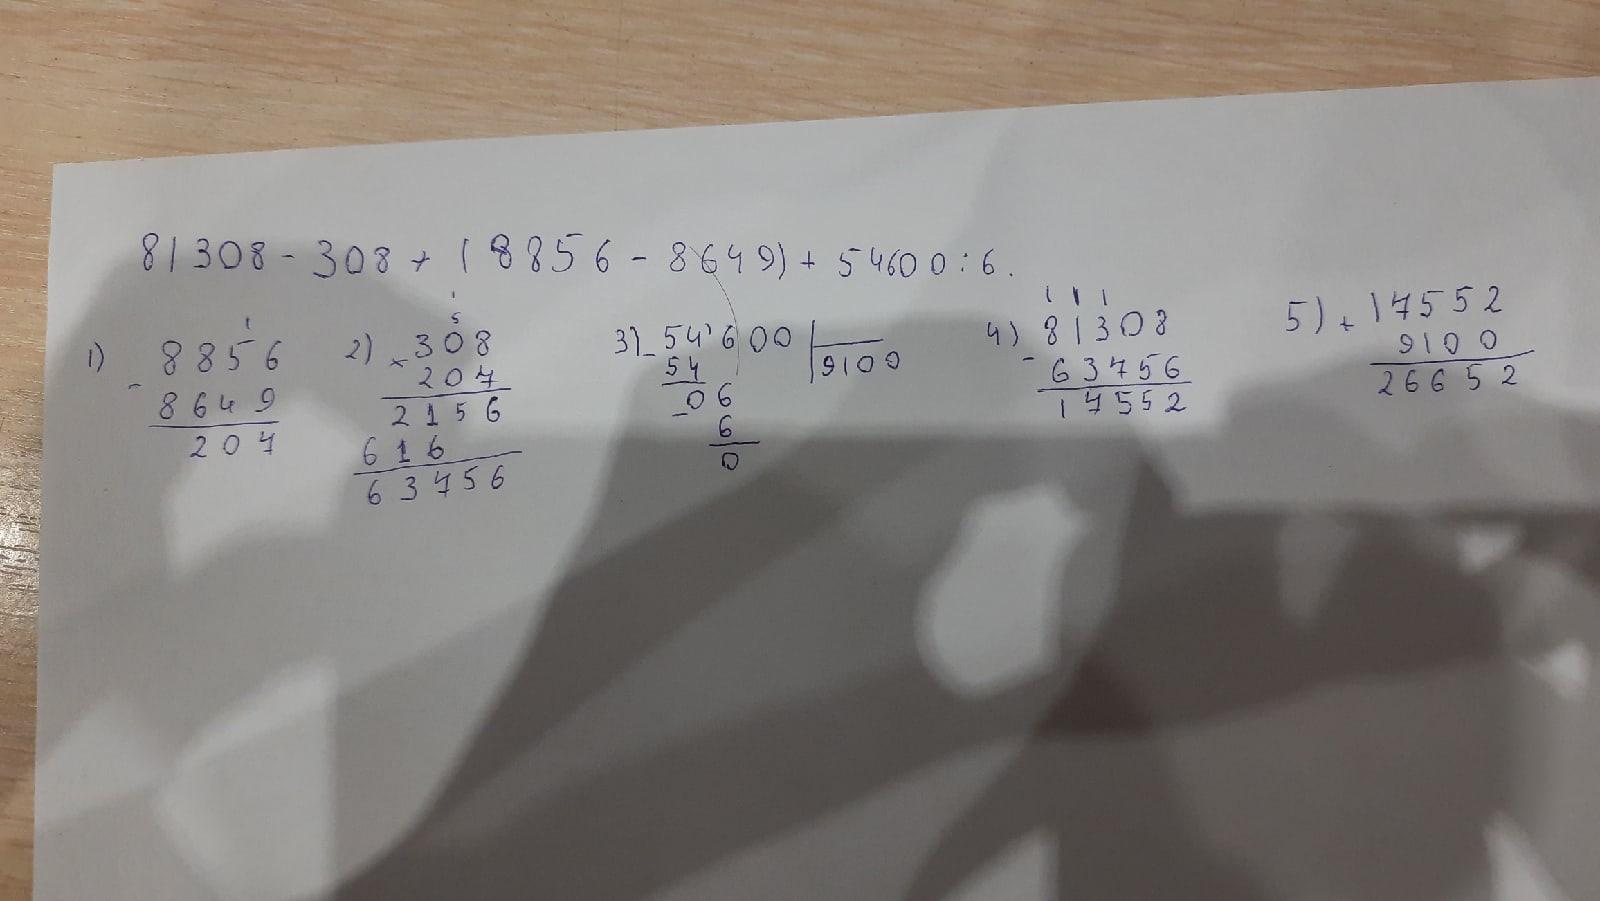 81308 - 308 + (8856 - 8649) + 54600 : 6.
1)
1
- 8856
8649
207
2)
1
5
× 308
207
2156
616
63756
3) - 54'600
9100
54
- 06
6
0
4)
1 1 1
- 81308
63756
17552
5) + 17552
9100
26652